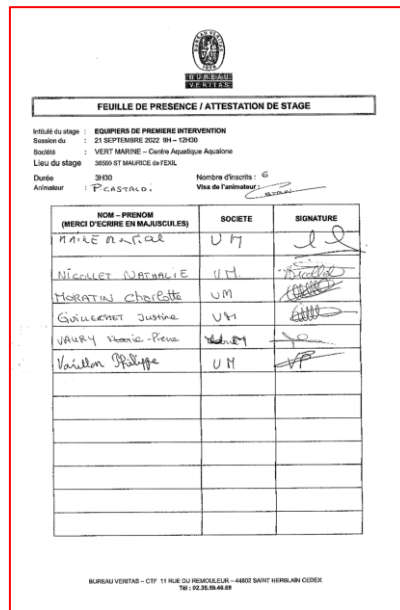 BUREAU VERITAS
1828
BUREAU
VERITAS
FEUILLE DE PRESENCE / ATTESTATION DE STAGE
Intitulé du stage : EQUIPIERS DE PREMIERE INTERVENTION
Session du : 21 SEPTEMBRE 2022 9H – 12H30
Société : VERT MARINE – Centre Aquatique Aqualone
Lieu du stage 38550 ST MAURICE de l'EXIL
Durée 3H30 Nombre d'inscrits : 6
Animateur : P CASTALDI. Visa de l'animateur :
NOM – PRENOM
(MERCI D'ECRIRE EN MAJUSCULES) SOCIETE SIGNATURE
VM
NICOLLET NATHALIE VM
MORATIN Charlotte VM
GUILLERMET Justine VM
VAURY Marie-Pierre
Vaillon Philippe VM VP
BUREAU VERITAS – CTF 11 RUE DU REMOULEUR – 44802 SAINT HERBLAIN CEDEX
Tél : 02.35.59.46.69